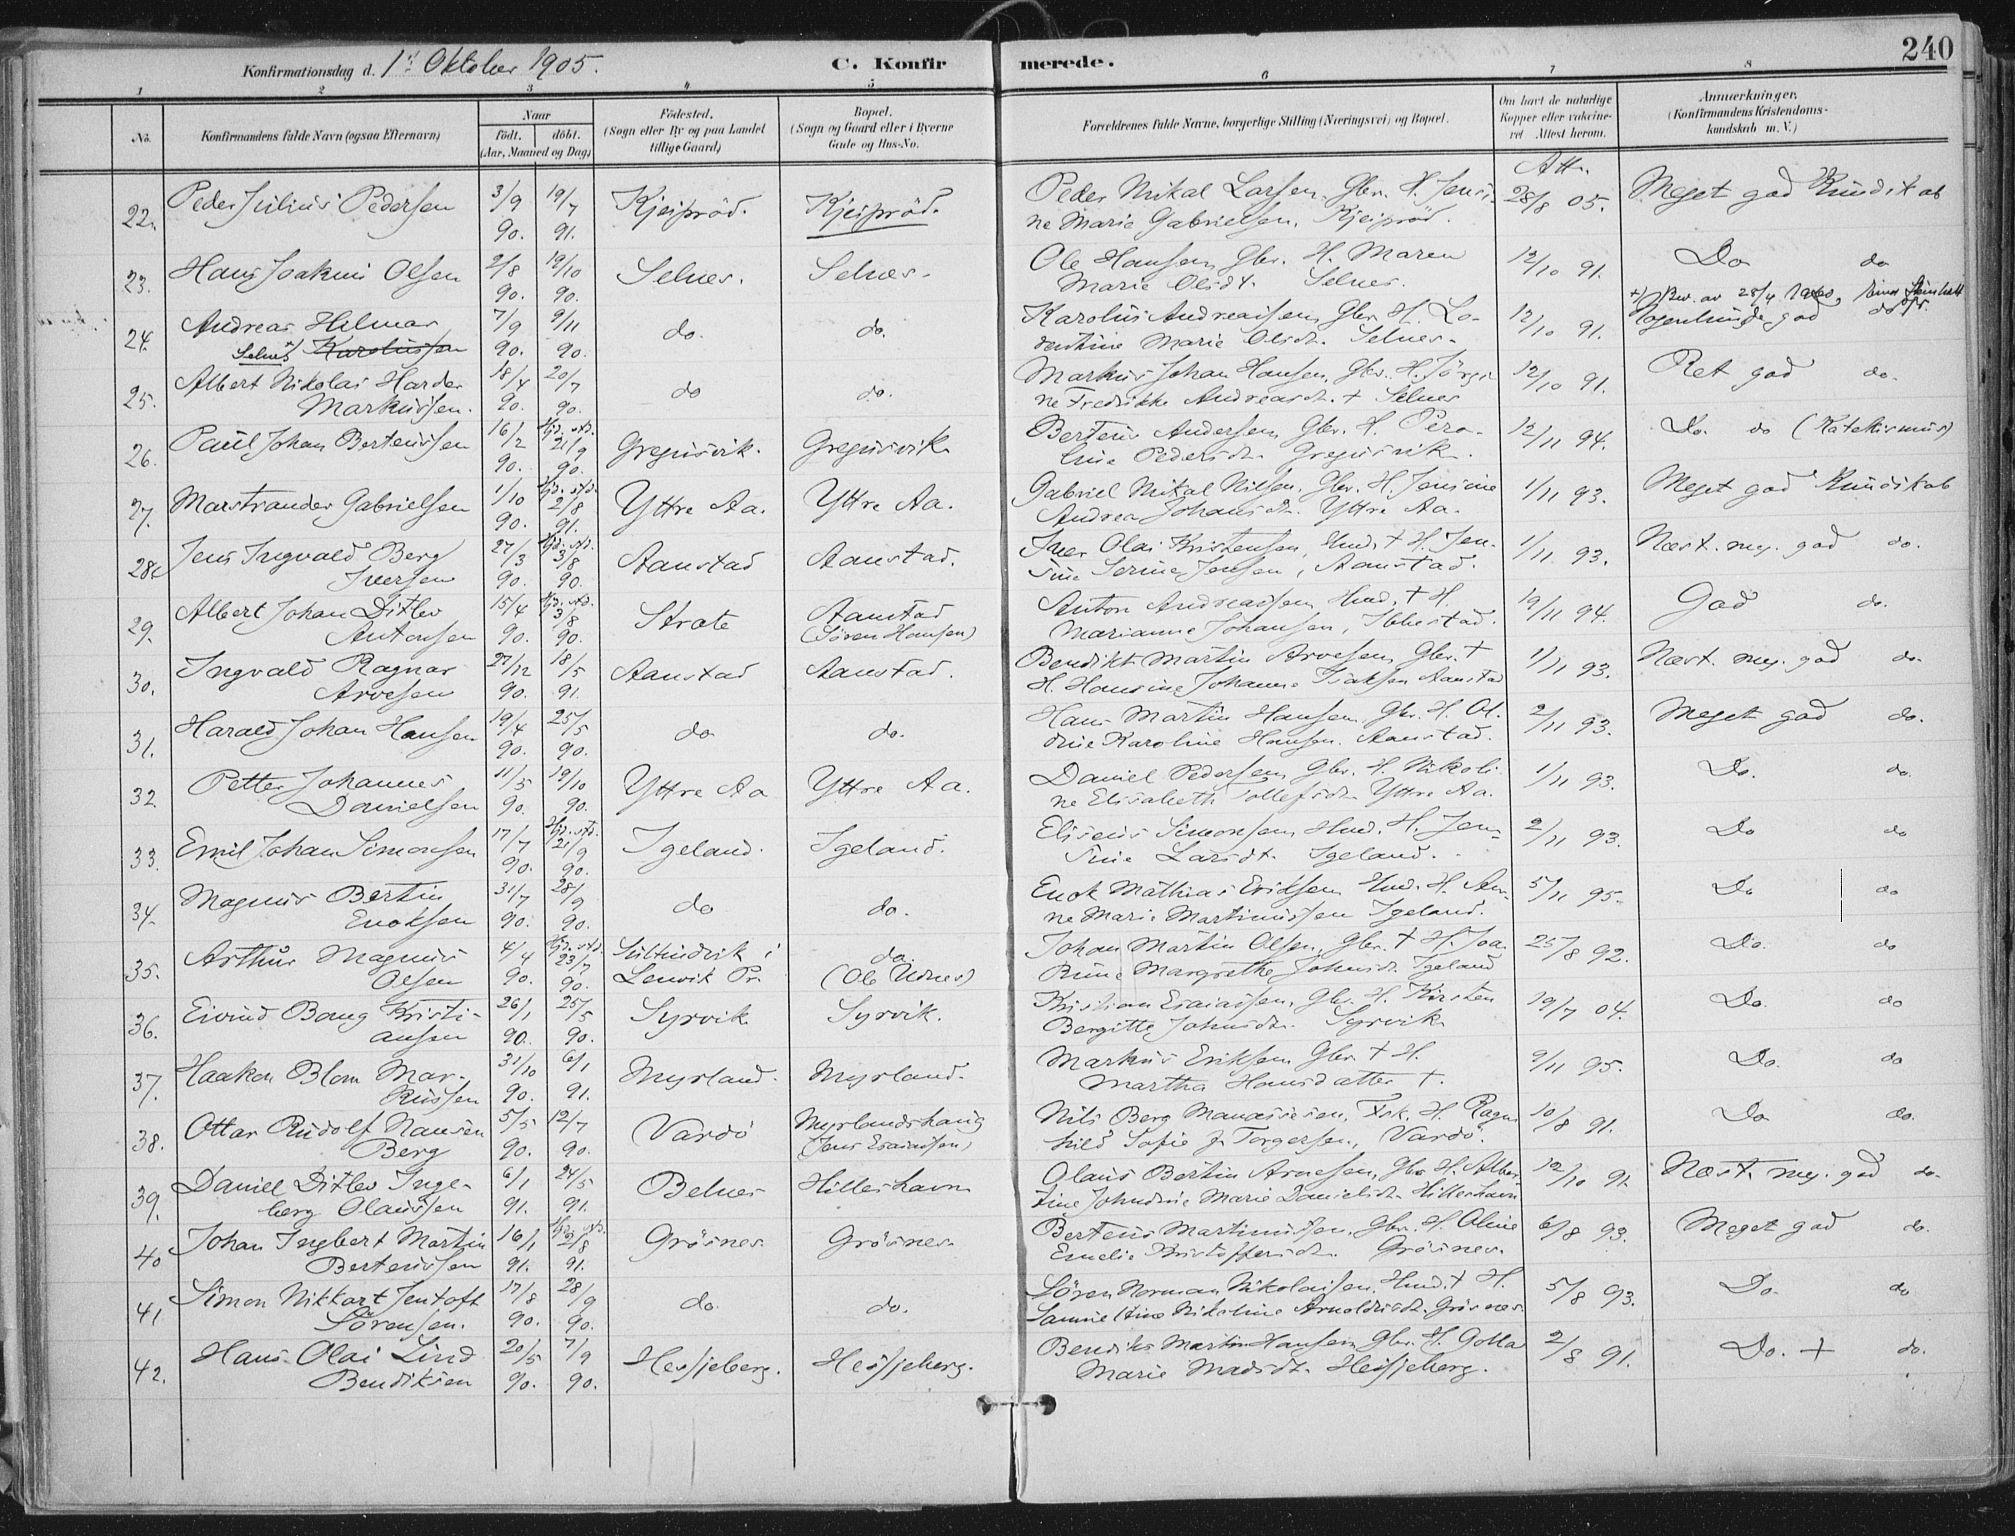 240
Konfirmationsdag d. 1ste Oktober 1905. C. Konfir merede.
1 2 3 4 5 6 7 8
No. Konfirmandens fulde Navn (ogsaa Efternavn) Naar födt. döbt. (Aar, Maaned og Dag) Födested. (Sogn eller By og paa Landet tillige Gaard) Bopæl. (Sogn og Gaard eller i Byerne Gade og Hus-No. Forældrenes fulde Navne, borgerlige Stilling (Næringsvei) og Bopæl. Om havt de naturlige Kopper eller vaccineret Attest herom. Anmærkninger. (Konfirmandens Kristendomskundskab m. V.)
Att.
22. Peder Julius Pedersen 3/9 19/7 Kjeiprød. Kjeiprød. Peder Mikal Larsen, Gbr. H. Jensi- 28/8 05. Meget god Kundskab
90. 91. ne Marie Gabrielsen, Kjeiprød.
23. Hans Joakim Olsen 2/8 19/10 Selnes. Selnes. Ole Hansen Gbr. H. Maren 12/10 91. Do do
90. 90. Marie Olsdt. Selnes.
+) Bev. av 28/4 1960,
24. Andreas Hilmar 7/9 9/11 do. do. Karolius Andreassen, Gbr. H. Lo- 12/10 91. Nogenlunde god do.
Selnes +) Karoliussen 90. 90. rentine Marie Olsdt. Selnes.
25. Albert Nikolai Harder 18/4 20/7 do do. Markus Johan Hansen, Gbr. H. Jørgi- 12/10 91. Ret god do.
Markussen. 90. 90. ne Fredrikke Andreasdt. + Selnes
26. Paul Johan Berteussen 16/2 Hjd. st/d. 21/9 Gregusvik. Gregusvik Berteus Andersen, Gbr. H. Pero- 12/11 94. Do. do (Katekismus)
90. 90. line Pedersdt. Gregusvik.
27. Marstrander Gabrielsen 1/10 Hjd. st/d. 2/8 Yttre Aa. Yttre Aa. Gabriel Mikal Nilsen, Gbr. H. Jensine 1/11 93. Meget god Kundskab
90. 91. Andrea Johansdt. Yttre Aa.
28. Jens Ingvald Berg 27/3 Hjd. st/d. 3/8 Aanstad Aanstad. Iver Olai Kristensen, Hmd. + H. Jen- 1/11 93. Næst. mg. god do.
Iversen 90. 90. sine Serine Jensen, Aanstad.
29. Albert Johan Ditlev 15/4 Hjd. st/d. 3/8 Strate Aanstad Anton Andreassen, Hmd. + H. 19/11 94. God do.
Antonsen 90. 90. (Søren Hansen) Marianne Johansen, Ibbestad.
30. Ingvald Ragnar 27/12 18/5 Aanstad Aanstad. Bendikt Martin Arvesen, Gbr. + 1/11 93. Næst. mg. god do.
Arvesen 90. 91. H. Hansine Johanne Isaksen Aanstad
31. Harald Johan Hansen 19/4 25/5 do do. Hans Martin Hansen, Gbr. H. Ol- 2/11 93. Meget god do.
90. 90. dine Karoline Hansen. Aanstad.
32 Petter Johannes 11/5 19/10 Yttre Aa Yttre Aa. Daniel Pedersen, Gbr. H. Nikoli- 1/11 93. Do. do
Danielsen 90. 90. ne Elisabeth Tollefsdt. Yttre Aa.
33. Emil Johan Simonsen 17/7 Hjd. st/d. 21/9 Igeland. Igeland. Eliseus Simonsen, Hmd. H. Jen- 2/11 93. Do do
90. 90. sine Larsdt. Igeland.
34. Magnus Bertin 31/7 28/9 do do. Enok Mathias Eriksen, Hmd. H. An- 5/11 95. Do do
Enoksen 90. 90. ne Marie Martinussen Igeland.
35. Arthur Magnus 4/4 Hjd. st/d. 23/7 Sultindvik i do. Johan Martin Olsen, Gbr. + H. Joa- 25/8 92. Do. do
Olsen 90. 90. Lenvik Pr. (Ole Udnes) kine Margrethe Johnsdt. Igeland
36. Eivind Bang Kristi- 26/1 25/5 Syrvik Syrvik. Kristian Esaiassen, Gbr. H. Kirsten 19/7 04. Do. do
ansen 90. 90. Bergitte Johnsdt. Syrvik
37. Haakon Blom Mar- 31/10 6/1 Myrland. Myrland. Markus Eriksen Gbr. + H. 9/11 95. Do. do
kussen 90. 91. Martha Hansdatter +.
38. Ottar Rudolf Nansen 5/5 12/7 Vardö Myrlandshaug Nils Berg Manassesen, Fsk. H. Ragn- 10/8 91. Do do.
Berg 90. 90. (Jens Esaiassen) hild Sofie J. Torgersen, Vardö.
39. Daniel Ditlev Inge- 6/1 24/5 Belnes Hilleshavn Olaus Bertin Arnesen, Gbr. H. Alber- 12/10 91. Næst. mg. god do.
berg Olaussen 91. 91. tine Johndine Marie Danielsdt. Hilleshavn
40 Johan Ingbert Martin 16/1 Hjd. st/d. 2/8 Grøsnes Grøsnes. Berteus Martinussen, Gbr. H. Oline 6/8 93. Meget god do.
Berteussen 91. 91. Emelie Kristoffersdt. Grøsnes.
41 Simon Nikkart Jentoft 17/8 28/9 do. do. Søren Norman Nikolaisen, Hmd. + H. 5/8 93. Do. do
Sørensen. 90. 90. Nikoline Arnoldusdt. Grøsnes
42. Hans Olai Lind 20/5 7/9 Hessjeberg. Hessjeberg. Bendiks Martin Hansen, Gbr. H. Golla 2/8 91. Do. + do.
Bendiksen 90. 90. Marie Madsdt. Hessjeberg.